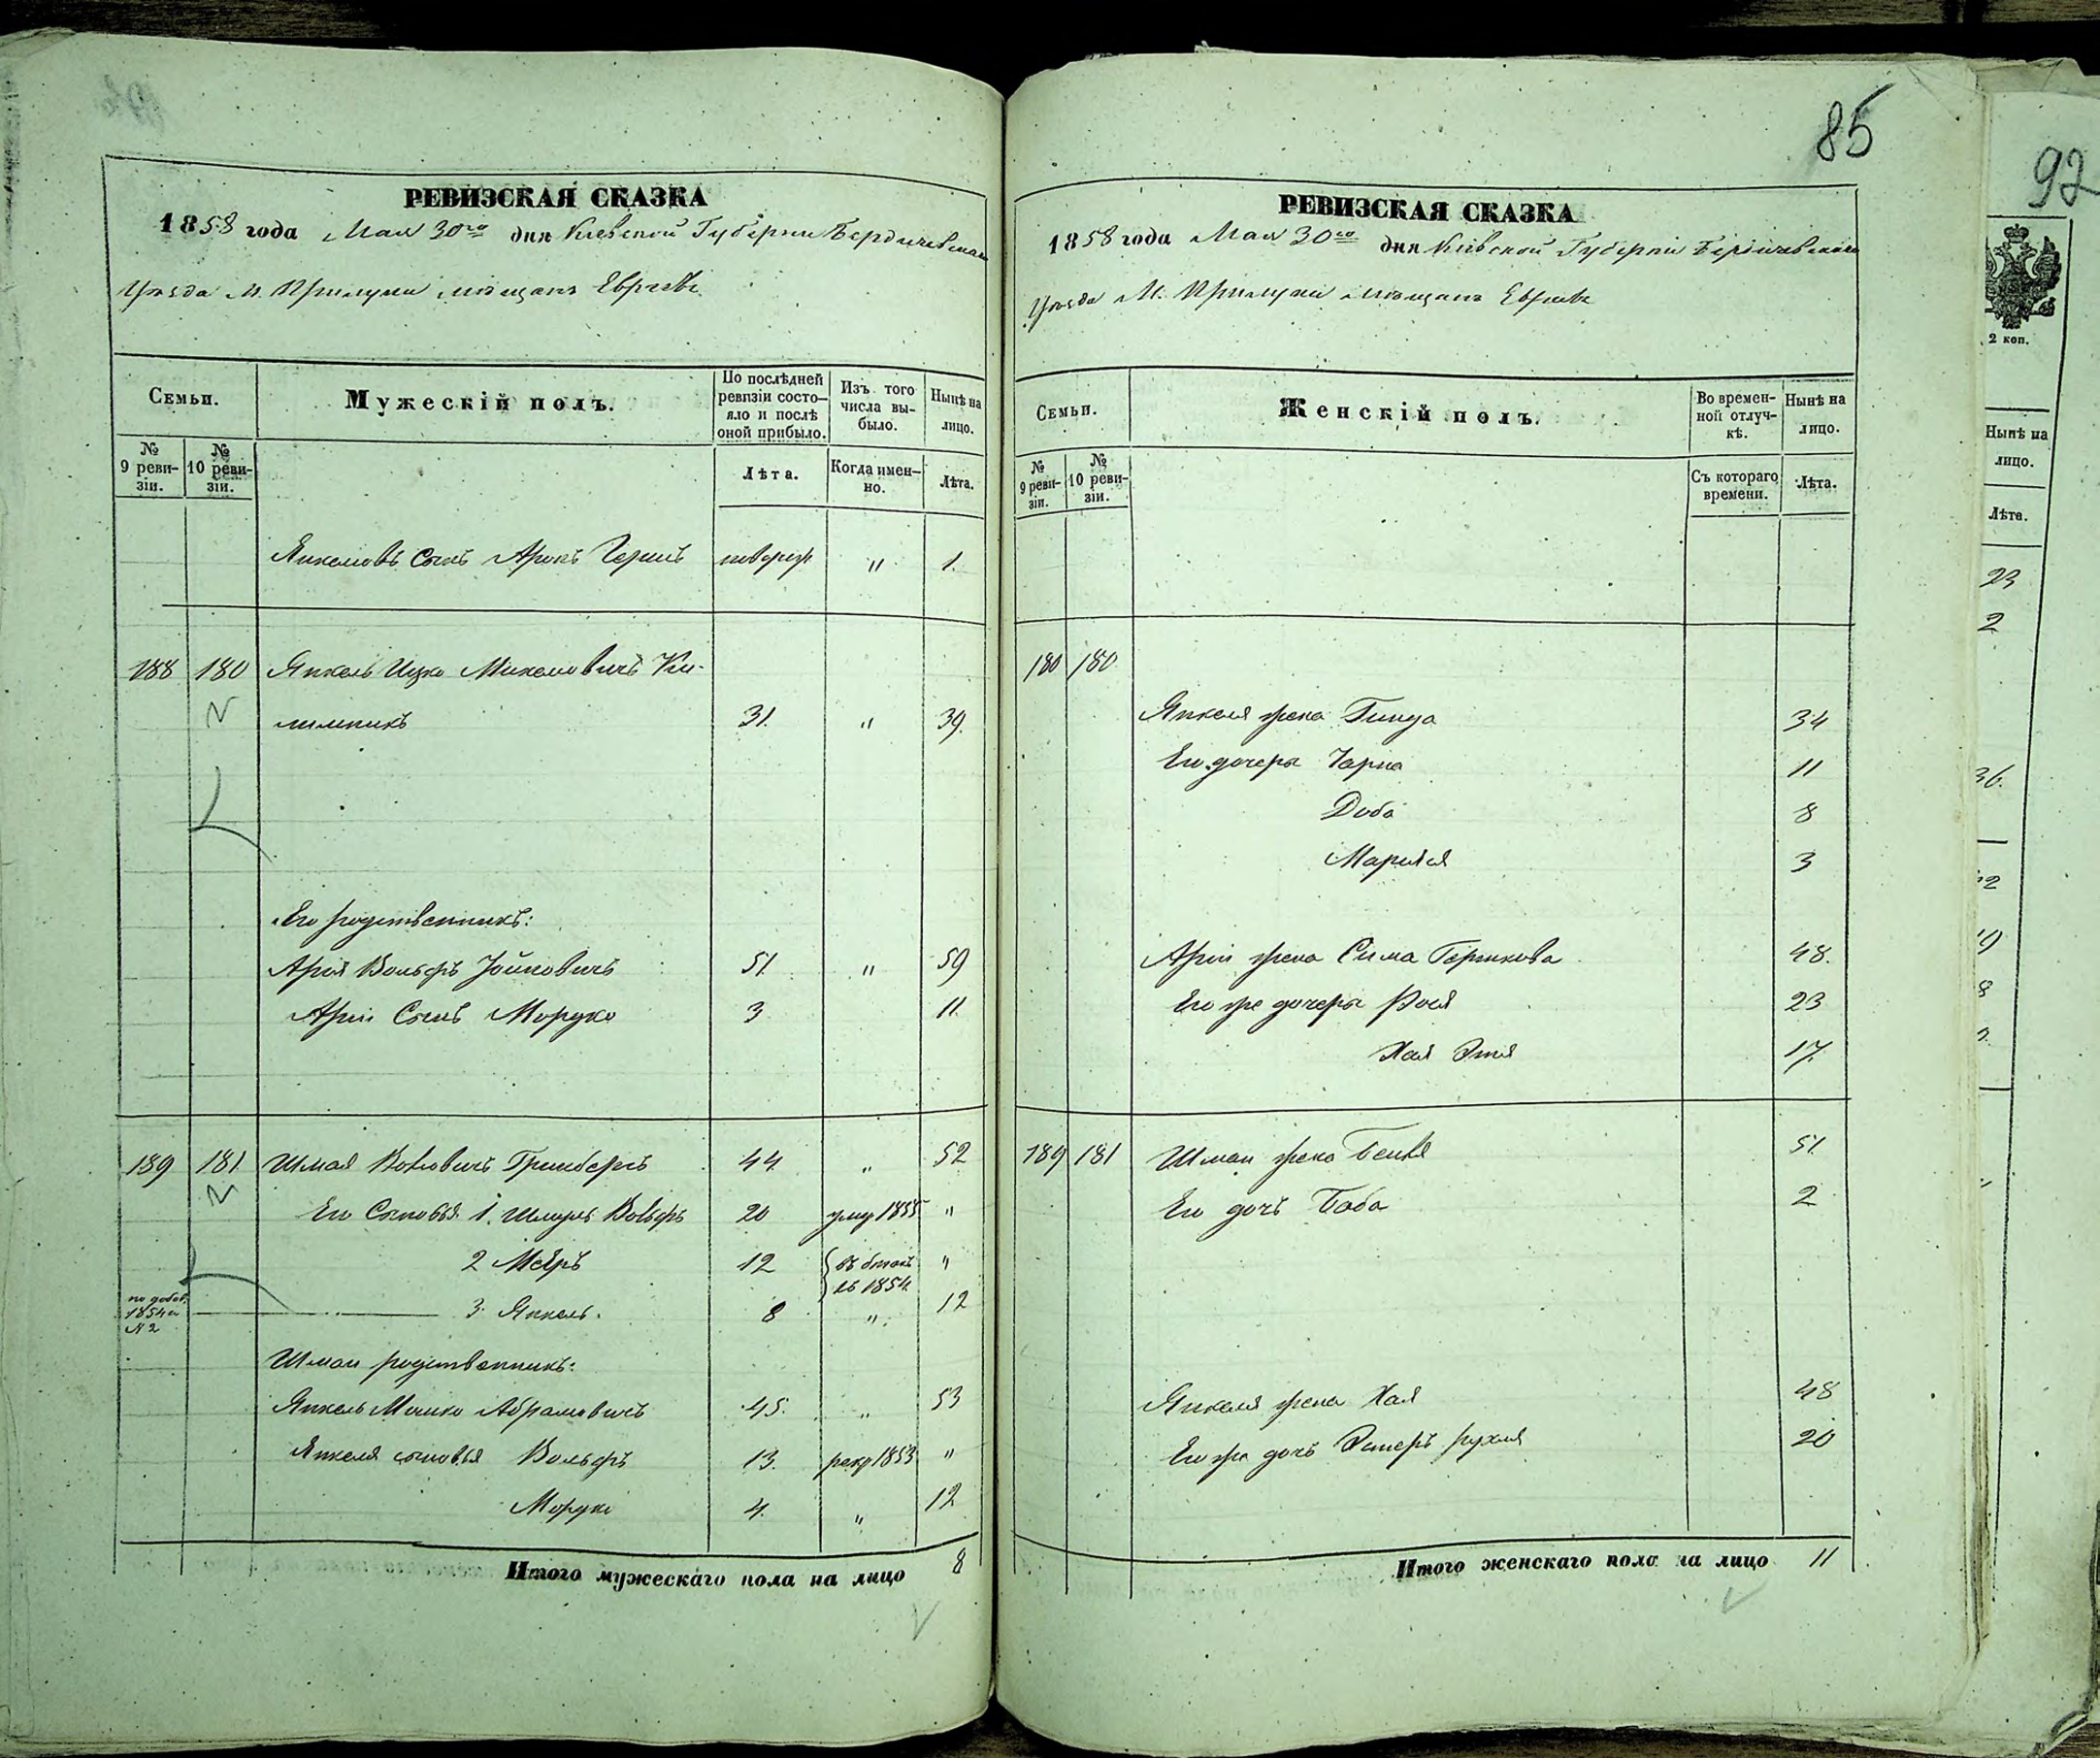 85
РЕВИЗСКАЯ СКАЗКА
1858 года Мая 30го дня Киевской Губерни Бердичевскаго
Уѣзда М. Прилуки мѣщанъ Евреевъ
Семьи.
Мужескій полъ.
По послѣдней ревизіи состо-
яло и послѣ
оной прибыло.
Изъ того
числа вы-
было.
Нынѣ на
лицо.
№
9 реви-
зіи.
№
10 реви-
зіи.
Лѣта.
Когда имен-
но.
Лѣта.
Сынъ Аронъ 1.
188 180 Янкель Ицко Ки-
31. " 39.
Его родственникъ:
Арія Вольфъ 51. " 59
Аріи Сынъ Мордко 3 11.
189 181 Шмая Вольовичъ Гринбергъ 44 " 52
Его Сыновья 1. Шмуль Вольфъ 20 умер 1855 "
2 Меѣръ 12 "
1854.
1854 г.
№ 2
3. Янкель. 8 " 12
Шмаи родственникъ:
Янкель Мошко Абрамовичъ 45. " 53
Янкеля сыновья Вольфъ 13. рекр 1853 "
Мордко 4. " 12
Итого мужескаго пола на лицо 8
РЕВИЗСКАЯ СКАЗКА
1858 года Мая 30го дня Кіевской Губерніи Бердичевскаго
Уѣзда М. Прилуки мѣщанъ Евреевъ
Семьи.
Женскій полъ.
Во времен-
ной отлуч-
кѣ.
Нынѣ на
лицо.
№
9 реви-
зіи.
№
10 реви-
зіи.
Съ котораго
времени.
Лѣта.
180 180
Янкеля жена 34
Его дочери Чарна 11
Доба 8
3
Аріи жена Сима 48.
Его же дочери 23
Хая Этя 17.
189 181 Шмаи жена 51
Его дочь Баба 2
Янкеля жена Хая 48
Его же дочь Эстеръ рухля 20
Итого женскаго пола на лицо 11
92
2 коп.
Нынѣ на
лицо.
Лѣта.
23
2
36.